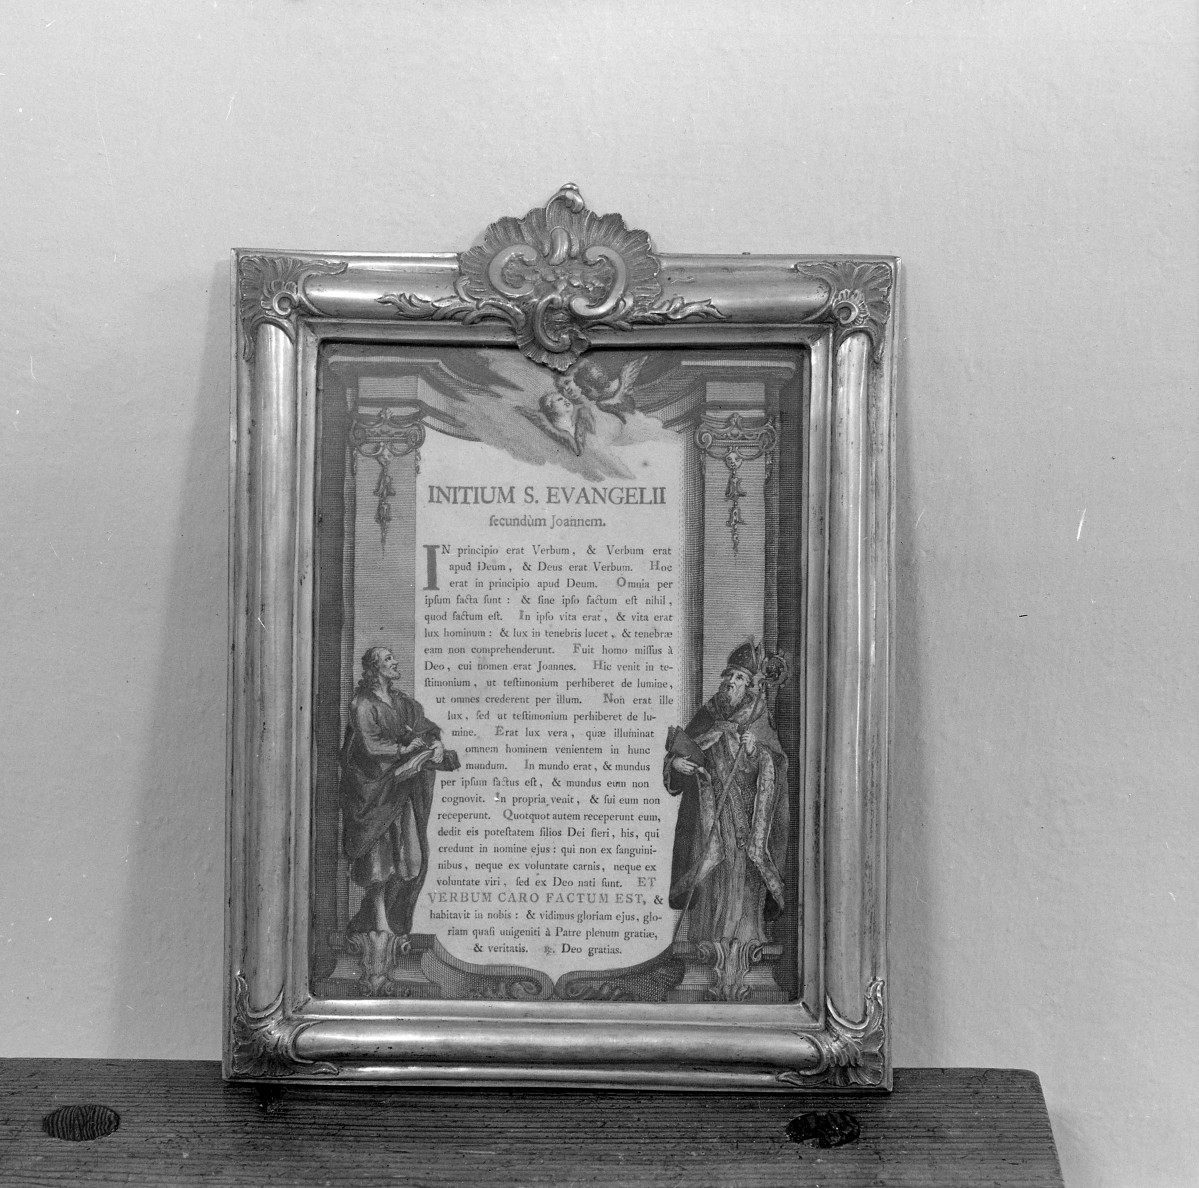 INITIUM S. EVANGELII
ſecundùm Joannem.
IN principio erat Verbum, & Verbum erat
apud Deum, & Deus erat Verbum. Hoc
erat in principio apud Deum. Omnia per
ipſum facta ſunt: & ſine ipſo factum eſt nihil,
quod factum eſt. In ipſo vita erat, & vita erat
lux hominum: & lux in tenebris lucet, & tenebræ
eam non comprehenderunt. Fuit homo miſſus à
Deo, cui nomen erat Joannes. Hic venit in te-
ſtimonium, ut teſtimonium perhiberet de lumine,
ut omnes crederent per illum. Non erat ille
lux, ſed ut teſtimonium perhiberet de lu-
mine. Erat lux vera, quæ illuminat
omnem hominem venientem in hunc
mundum. In mundo erat, & mundus
per ipſum factus eſt, & mundus eum non
cognovit. In propria venit, & ſui eum non
receperunt. Quotquot autem receperunt eum,
dedit eis poteſtatem filios Dei fieri, his, qui
credunt in nomine ejus: qui non ex ſanguini-
nibus, neque ex voluntate carnis, neque ex
voluntate viri, ſed ex Deo nati ſunt. ET
VERBUM CARO FACTUM EST, &
habitavit in nobis: & vidimus gloriam ejus, glo-
riam quaſi unigeniti à Patre plenum gratiæ,
& veritatis. ℟. Deo gratias.